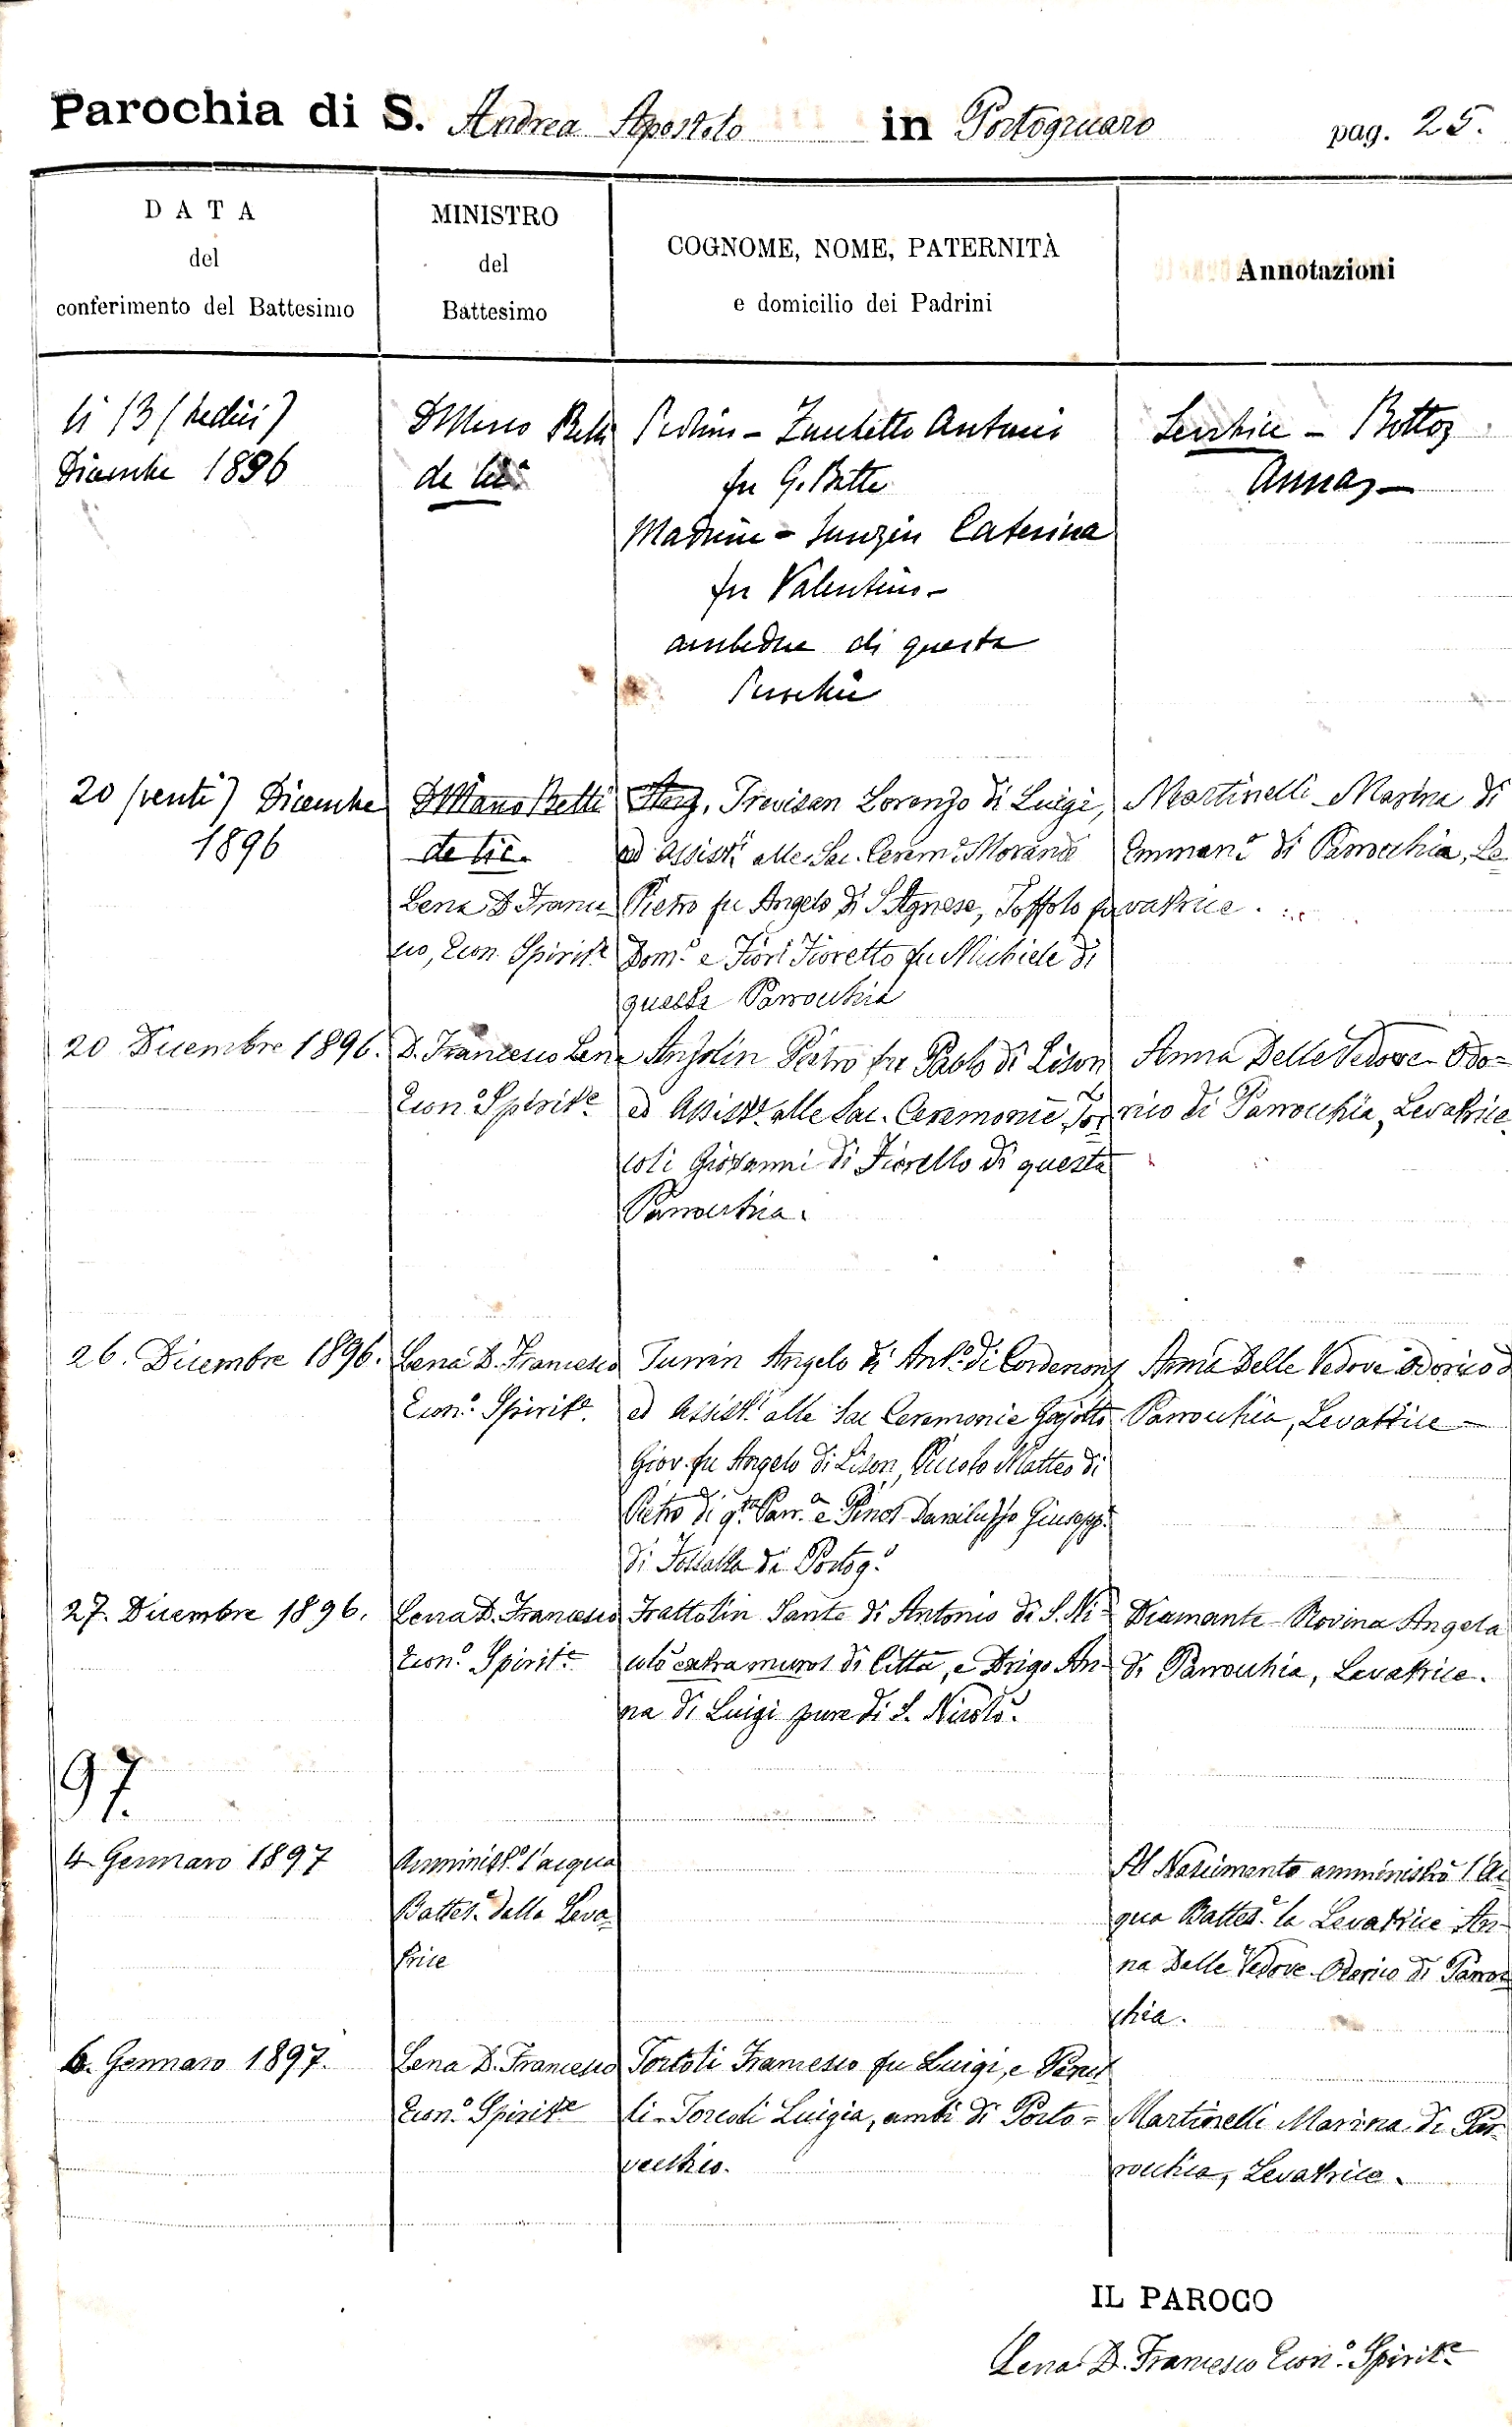 Parochia di S. Andrea Apostolo in Portogruaro pag. 25.
DATA
del
conferimento del Battesimo
MINISTRO
del
Battesimo
COGNOME, NOME, PATERNITÀ
e domicilio dei Padrini
Annotazioni
li 13 (tredici)
Dicembre 1896
de lic.
Padrino - Zanchetto Antonio
fu G. Batta
Madrina - Caterina
fu Valentino -
ambedue di questa
Parochia
Levatrice - Bottos
Anna -
20 (venti) Dicembre
1896
de lic.
Lena D. France
sco, Econ. Spirit.e
Trevisan Lorenzo di Luigi,
ed Assist.i alle Sac. Cerem.e Morandi
Pietro fu Angelo di S. Agnese, Toffolo fu
Dom.o e Fiori Fioretto fu Michiele di
questa Parrocchia
Martinelli Marina di
di Parrocchia, Le=
vatrice.
20 Dicembre 1896.
D. Francesco Lena
Econ.o Spirit.e
Anzolin Pietro fu Paolo di Lison
ed Assist.e alle Sac. Ceremonie Tor
toli Giovanni di Fiorello di questa
Parrocchia.
Anna Delle Vedove Odo=
rico di Parrocchia, Levatrice.
26. Dicembre 1896.
Lena D. Francesco
Econ.o Spirit.e
Angelo di Ant.o di Cordenons
ed Assist.i alle Sac Ceremonie
Giov. fu Angelo di Lison, Piccolo Matteo di
Pietro di q.ta Parr.a e Pinos Daniluzzo Giusepp.e
di Fossalta di Portog.o
Anna Delle Vedove Odorico di
Parrocchia, Levatrice -
27. Dicembre 1896.
Lena D. Francesco
Econ.o Spirit.e
Frattolin Sante di Antonio di S. Ni=
colò extra muros di Città, e Drigo An-
na di Luigi pure di S. Nicolò.
Diamante Rovina Angela
di Parrocchia, Levatrice.
97.
4. Gennaro 1897
Amminist.o l'acqua
Battes.e dalla Leva=
trice
Al Nascimento amministrò l'Ac
qua Battes.e la Levatrice An-
na Delle Vedove Odorico di Parroc
chia.
6. Gennaro 1897.
Lena D. Francesco
Econ.o Spirit.e
Tortoli Francesco fu Luigi, e
Luigia, ambi di Porto=
vecchio.
Martinelli Marina di Par
rocchia, Levatrice.
IL PAROCO
Lena D. Francesco Econ.o Spirit.e